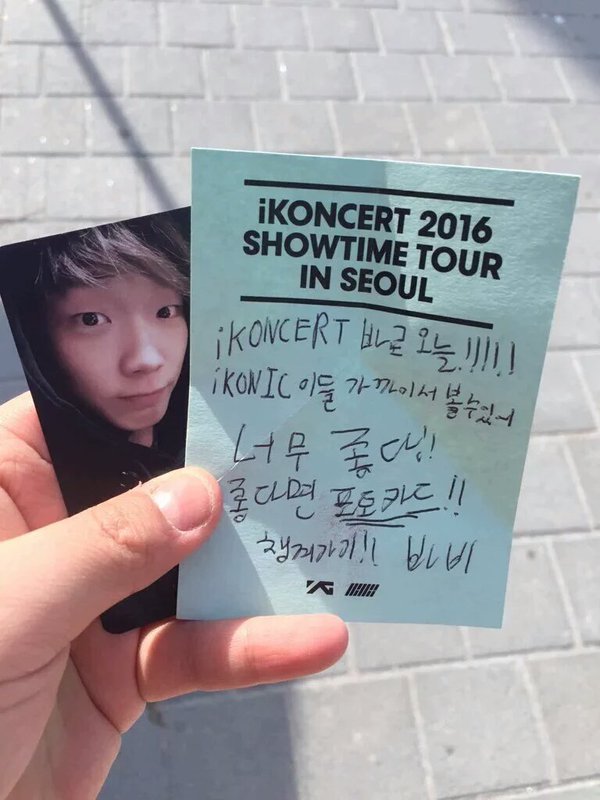 iKONCERT 2016
SHOWTIME TOUR
IN SEOUL
iKONCERT 바로 오늘!!!!!
iKONIC 이들 가까이서 볼수있어
너무 좋다!
좋다면 포토카드!!
챙겨가기!! 바비
YG iKON